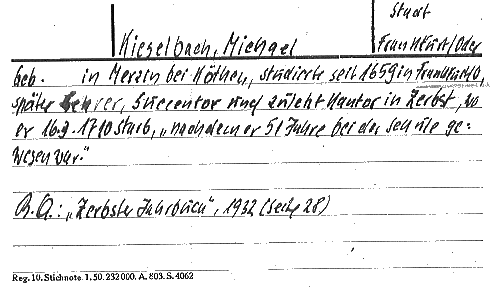 Stadt
Kieselbach, Michael Frankfurt/Oder
geb. in Merzin bei Köthen, studierte seit 1659 in Frankfurt/O,
später Lehrer, Succentor und zuletzt Kantor in Zerbst, wo
er 16.9.1710 starb, „nachdem er 51 Jahre bei der Schule ge-
wesen war."
B.A.: „Zerbster Jahrbuch", 1932 (Seite 28)
Reg. 10. Stichnote. 1. 50. 232 000. A. 803. S. 4062